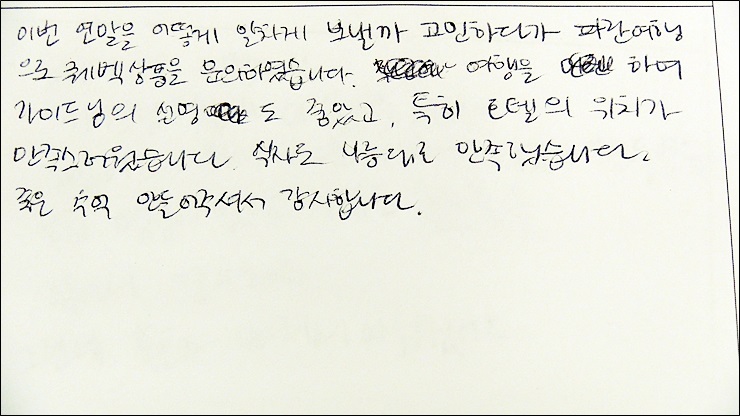 이번 연말을 어떻게 알차게 보낼까 고민하다가 파란여행
으로 퀘벡상품을 문의하였습니다. 여행을 하며
가이드님의 설명도 좋았고, 특히 호텔의 위치가
만족스러웠습니다. 식사도 나름대로 만족했습니다.
좋은 추억 만들어주셔서 감사합니다.